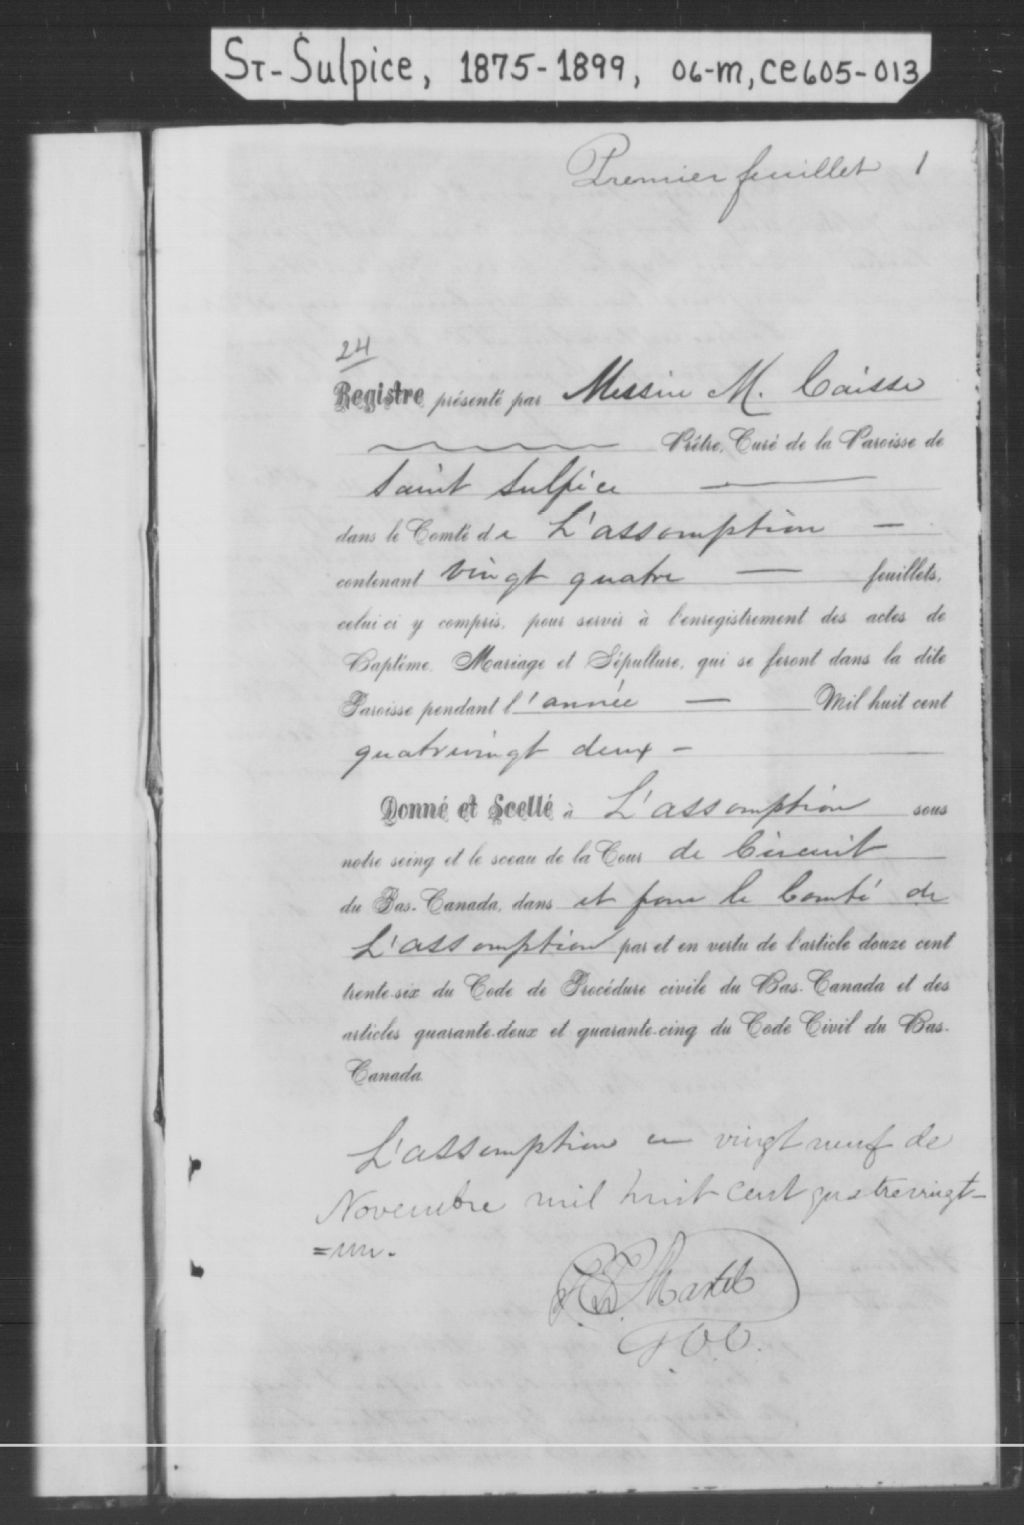 St-Sulpice, 1875-1899, 06-m, CE605-013
Premier feuillet 1
24
Registre présenté par Messire M. Caisse
Prêtre, Curé de la Paroisse de
Saint Sulpice —
dans le Comté de L'assomption —
contenant vingt quatre — feuillets,
celui ci y compris, pour servir à l'enregistrement des actes de
Baptême, Mariage et Sépulture, qui se feront dans la dite
Paroisse pendant l'année — Mil huit cent
quatrevingt deux -
Donné et Scellé à L'assomption sous
notre seing et le sceau de la Cour de Circuit
du Bas-Canada, dans et pour le Comté de
L'assomption par et en vertu de l'article douze cent
trente-six du Code de Procédure civile du Bas-Canada et des
articles quarante-deux et quarante-cinq du Code Civil du Bas-
Canada.
L'assomption ce vingt neuf de
Novembre mil huit cent quatrevingt-
=un.
Martel